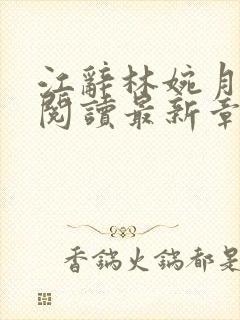 江辭林婉月
閱讀最新章
香鍋火鍋都是